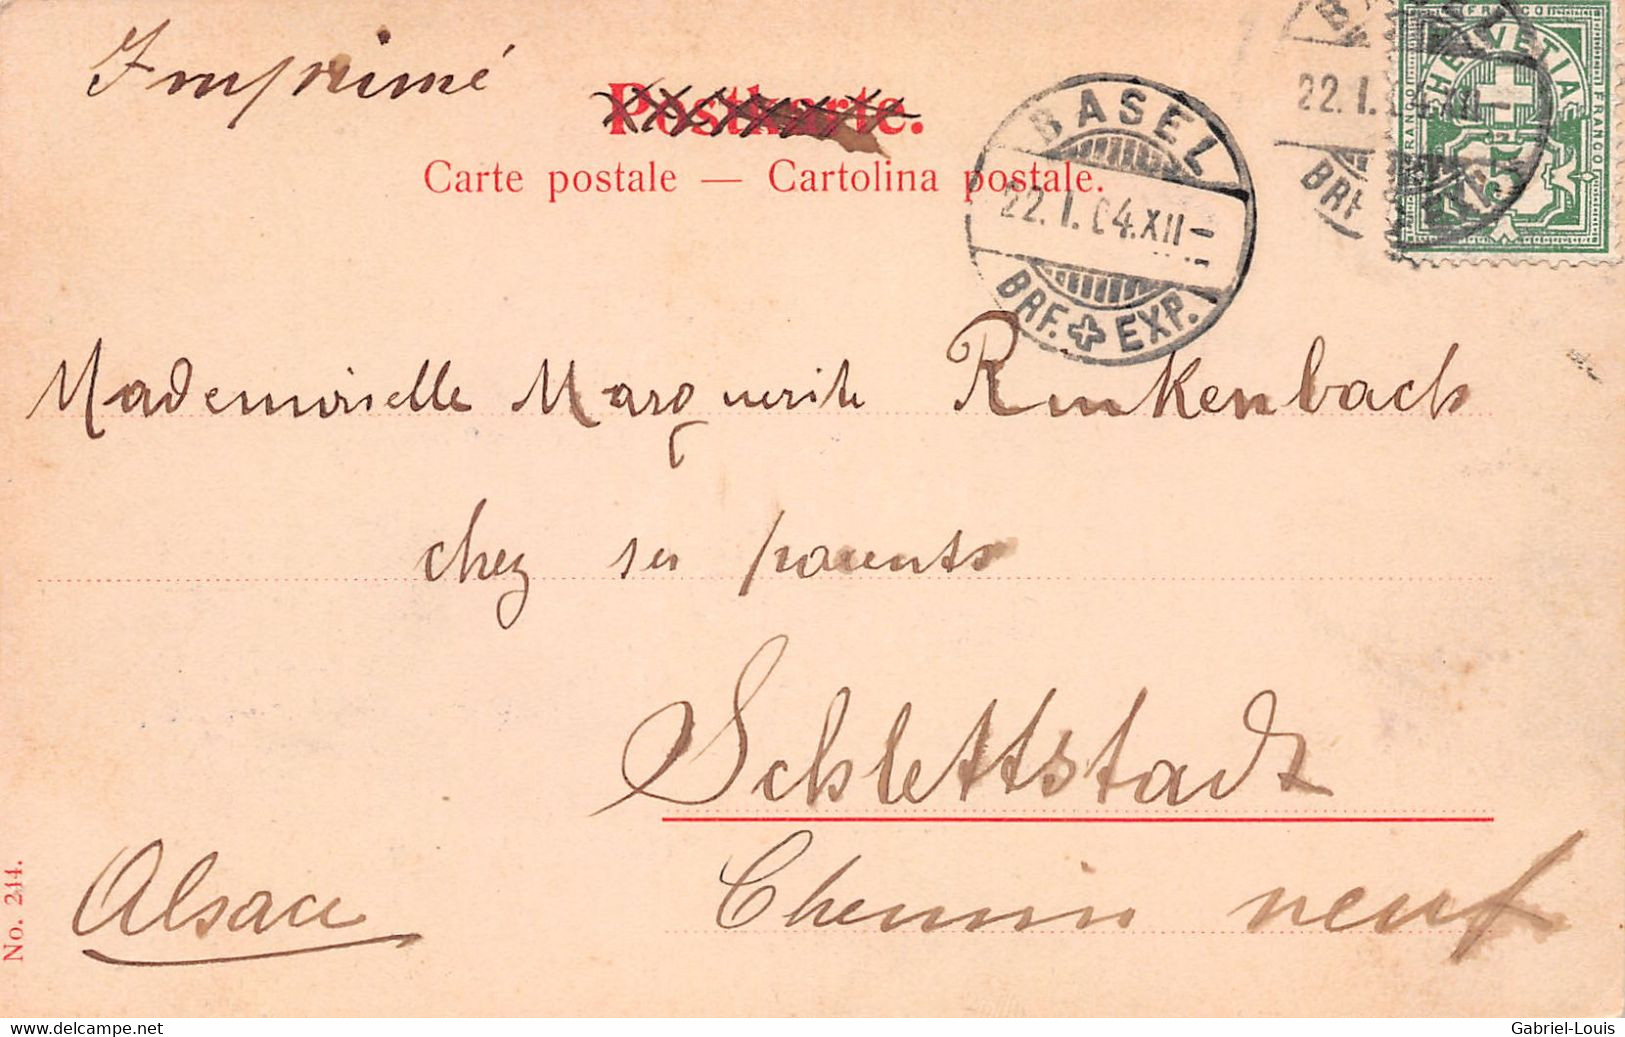 Imprimé
Postkarte.
Carte postale — Cartolina postale.
BASEL
22.I.04.XII-
BRF. EXP.
22.I.
BRF. EXP.
FRANCO
HELVETIA
FRANCO
FRANCO
5
Mademoiselle Marguerite Rinkenbach
chez ses parents
Schlettstadt
Chemin neuf
Alsace
No. 244.
www.delcampe.net
Gabriel-Louis